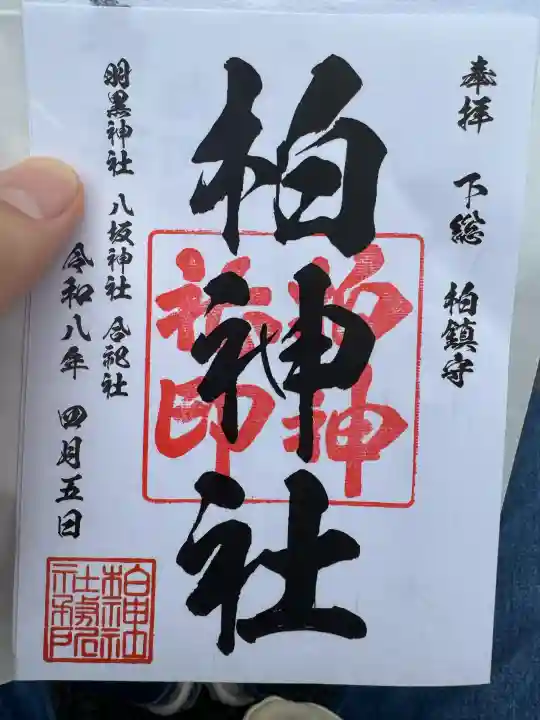 奉拝 下総 柏鎮守
柏神社
柏神
社印
羽黒神社 八坂神社 合祀社
令和八年 四月五日
柏神社
社務所